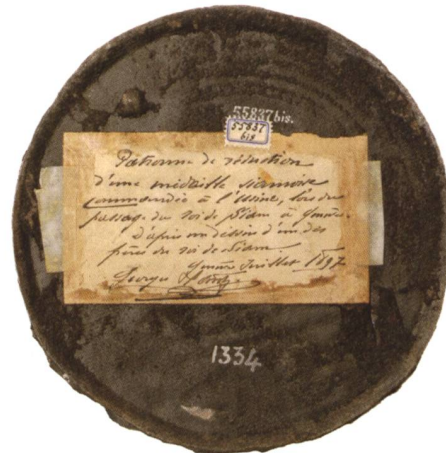 55837 bis.
55837
bis
Patronne de réduction
d'une médaille siamoise
commandée à l'Usine, lors du
passage du roi de Siam à Genève.
D'après un dessin d'un des
frères du roi de Siam.
Genève Juillet 1897
Georges
1334